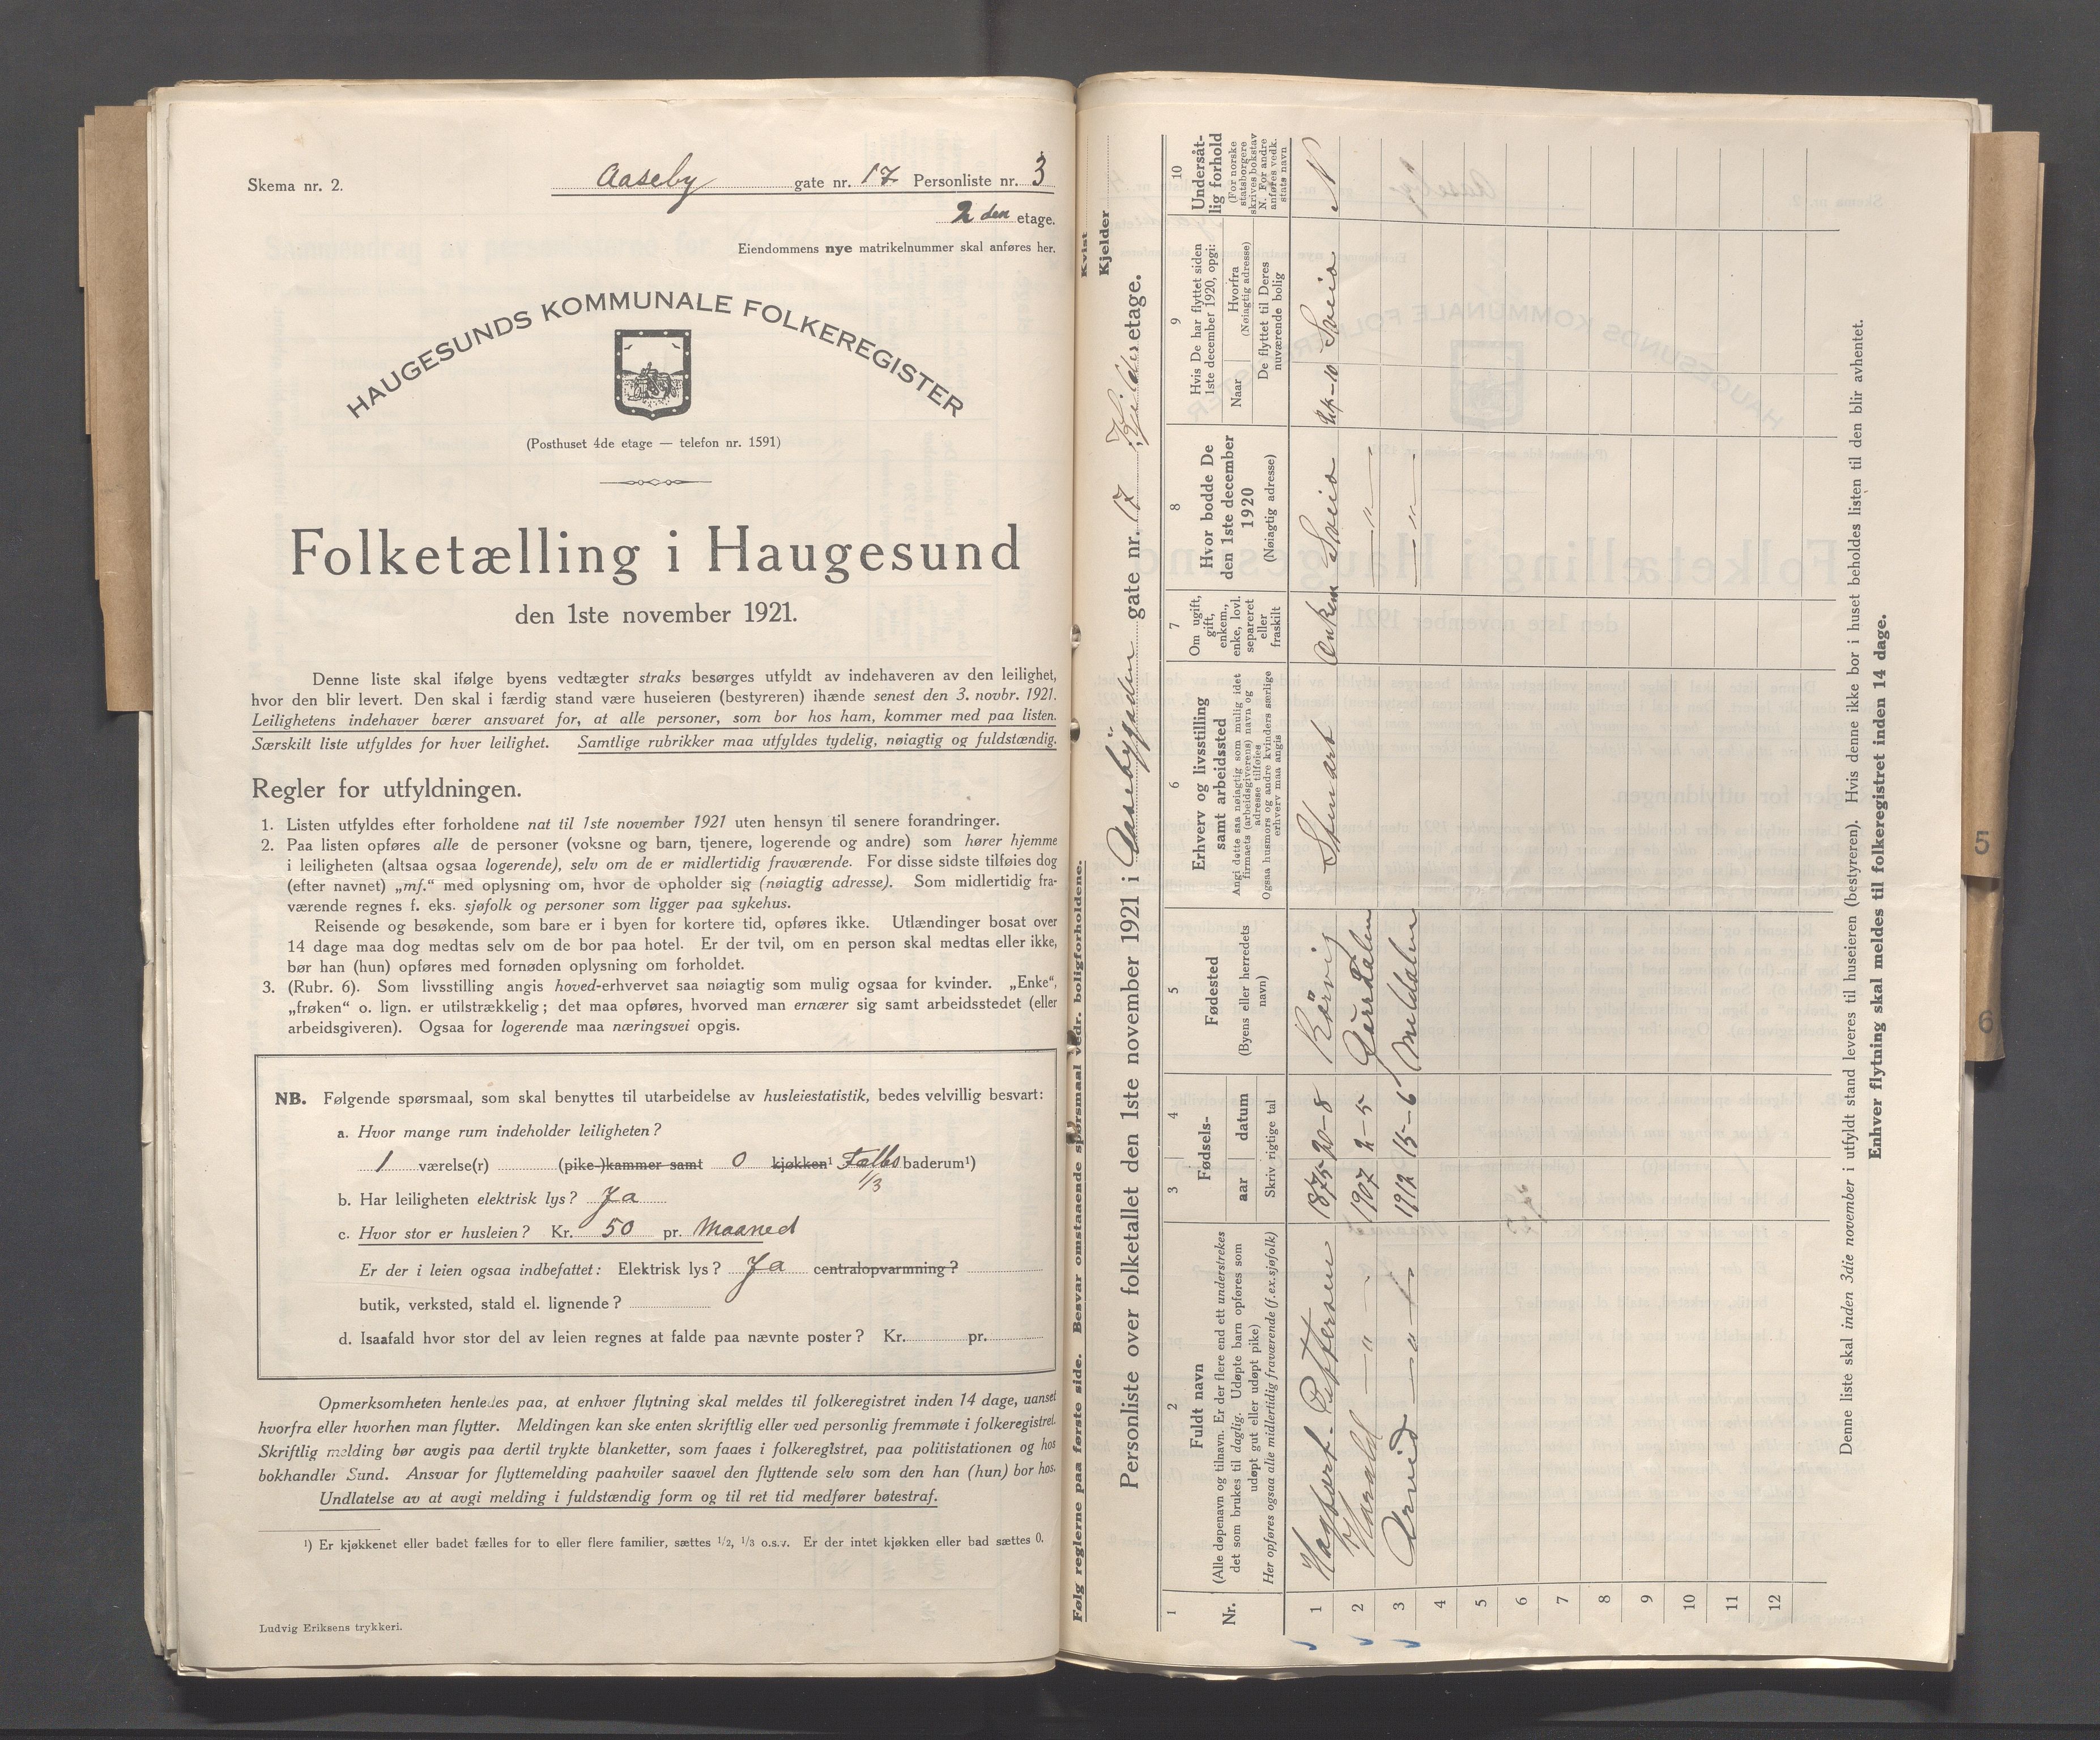 Skema nr. 2.
Aaseby gate nr. 17 Personliste nr. 3
2 den etage.
Eiendommens nye matrikelnummer skal anføres her.
HAUGESUNDS KOMMUNALE FOLKEREGISTER
(Posthuset 4de etage — telefon nr. 1591)
Folketælling i Haugesund
den 1ste november 1921.
Denne liste skal ifølge byens vedtægter straks besørges utfyldt av indehaveren av den leilighet,
hvor den blir levert. Den skal i færdig stand være huseieren (bestyreren) ihænde senest den 3. novbr. 1921.
Leilighetens indehaver bærer ansvaret for, at alle personer, som bor hos ham, kommer med paa listen.
Særskilt liste utfyldes for hver leilighet. Samtlige rubrikker maa utfyldes tydelig, nøiagtig og fuldstændig.
Regler for utfyldningen.
1. Listen utfyldes efter forholdene nat til 1ste november 1921 uten hensyn til senere forandringer.
2. Paa listen opføres alle de personer (voksne og barn, tjenere, logerende og andre) som hører hjemme
i leiligheten (altsaa ogsaa logerende), selv om de er midlertidig fraværende. For disse sidste tilføies dog
(efter navnet) „mf.“ med oplysning om, hvor de opholder sig (nøiagtig adresse). Som midlertidig fra-
værende regnes f. eks. sjøfolk og personer som ligger paa sykehus.
Reisende og besøkende, som bare er i byen for kortere tid, opføres ikke. Utlændinger bosat over
14 dage maa dog medtas selv om de bor paa hotel. Er der tvil, om en person skal medtas eller ikke,
bør han (hun) opføres med fornøden oplysning om forholdet.
3. (Rubr. 6). Som livsstilling angis hoved-erhvervet saa nøiagtig som mulig ogsaa for kvinder. „Enke“,
„frøken“ o. lign. er utilstrækkelig; det maa opføres, hvorved man ernærer sig samt arbeidsstedet (eller
arbeidsgiveren). Ogsaa for logerende maa næringsvei opgis.
NB. Følgende spørsmaal, som skal benyttes til utarbeidelse av husleiestatistik, bedes velvillig besvart:
a. Hvor mange rum indeholder leiligheten?
1 værelse(r) (pike-)kammer samt 0 kjøkken¹ Fælles baderum¹)
1/3
b. Har leiligheten elektrisk lys? Ja
c. Hvor stor er husleien? Kr. 50 pr. Maaned
Er der i leien ogsaa indbefattet: Elektrisk lys? Ja centralopvarmning?
butik, verksted, stald el. lignende?
d. Isaafald hvor stor del av leien regnes at falde paa nævnte poster? Kr. pr.
Opmerksomheten henledes paa, at enhver flytning skal meldes til folkeregistret inden 14 dage, uanset
hvorfra eller hvorhen man flytter. Meldingen kan ske enten skriftlig eller ved personlig fremmøte i folkeregistret.
Skriftlig melding bør avgis paa dertil trykte blanketter, som faaes i folkeregistret, paa politistationen og hos
bokhandler Sund. Ansvar for flyttemelding paahviler saavel den flyttende selv som den han (hun) bor hos.
Undlatelse av at avgi melding i fuldstændig form og til ret tid medfører bøtestraf.
¹) Er kjøkkenet eller badet fælles for to eller flere familier, sættes 1/2, 1/3 o.s.v. Er der intet kjøkken eller bad sættes 0.
Ludvig Eriksens trykkeri.
Følg reglerne paa første side. Besvar omstaaende spørsmaal vedr. boligforholdene.
Kvist
Kjelder
Personliste over folketallet den 1ste november 1921 i Aasebygaden gate nr. 17 Kjelder etage.
1 2 3 4 5 6 7 8 9 10
Nr.
Fuldt navn
(Alle døpenavn og tilnavn. Er der flere end ett understrekes
det som brukes til daglig. Udøpte barn opføres som
udøpt gut eller udøpt pike)
Her opføres ogsaa alle midlertidig fraværende (f.ex. sjøfolk)
Fødsels-
aar datum
Skriv rigtige tal
Fødested
(Byens eller herredets
navn)
Erhverv og livsstilling
samt arbeidssted
Angi dette saa nøiagtig som mulig idet
firmaets (arbeidsgiverens) navn og
adresse tilføies
Ogsaa husmors og andre kvinders særlige
erhverv maa angis
Om ugift,
gift,
enkem.,
enke, lovl.
separeret
eller
fraskilt
Hvor bodde De
den 1ste december
1920
(Nøiagtig adresse)
Hvis De har flyttet siden
1ste december 1920, opgi:
Naar
Hvorfra
(Nøiagtig adresse)
De flyttet til Deres
nuværende bolig
Undersåt-
lig forhold
(For norske
statsborgere
skrives bokstav
N. For andre
anføres vedk.
stats navn
1 Hagbart Pettersen 1875 20-8 Rörvig Stuuart Enkem Sveio Sveio N
2 Harald — " — 1907 2-5 — " —
3 Arvid — " — 1912 15-6 Meldalen — " —
4
5
6
7
8
9
10
11
12
Denne liste skal inden 3die november i utfyldt stand leveres til huseieren (bestyreren). Hvis denne ikke bor i huset beholdes listen til den blir avhentet.
Enhver flytning skal meldes til folkeregistret inden 14 dage.
5
6